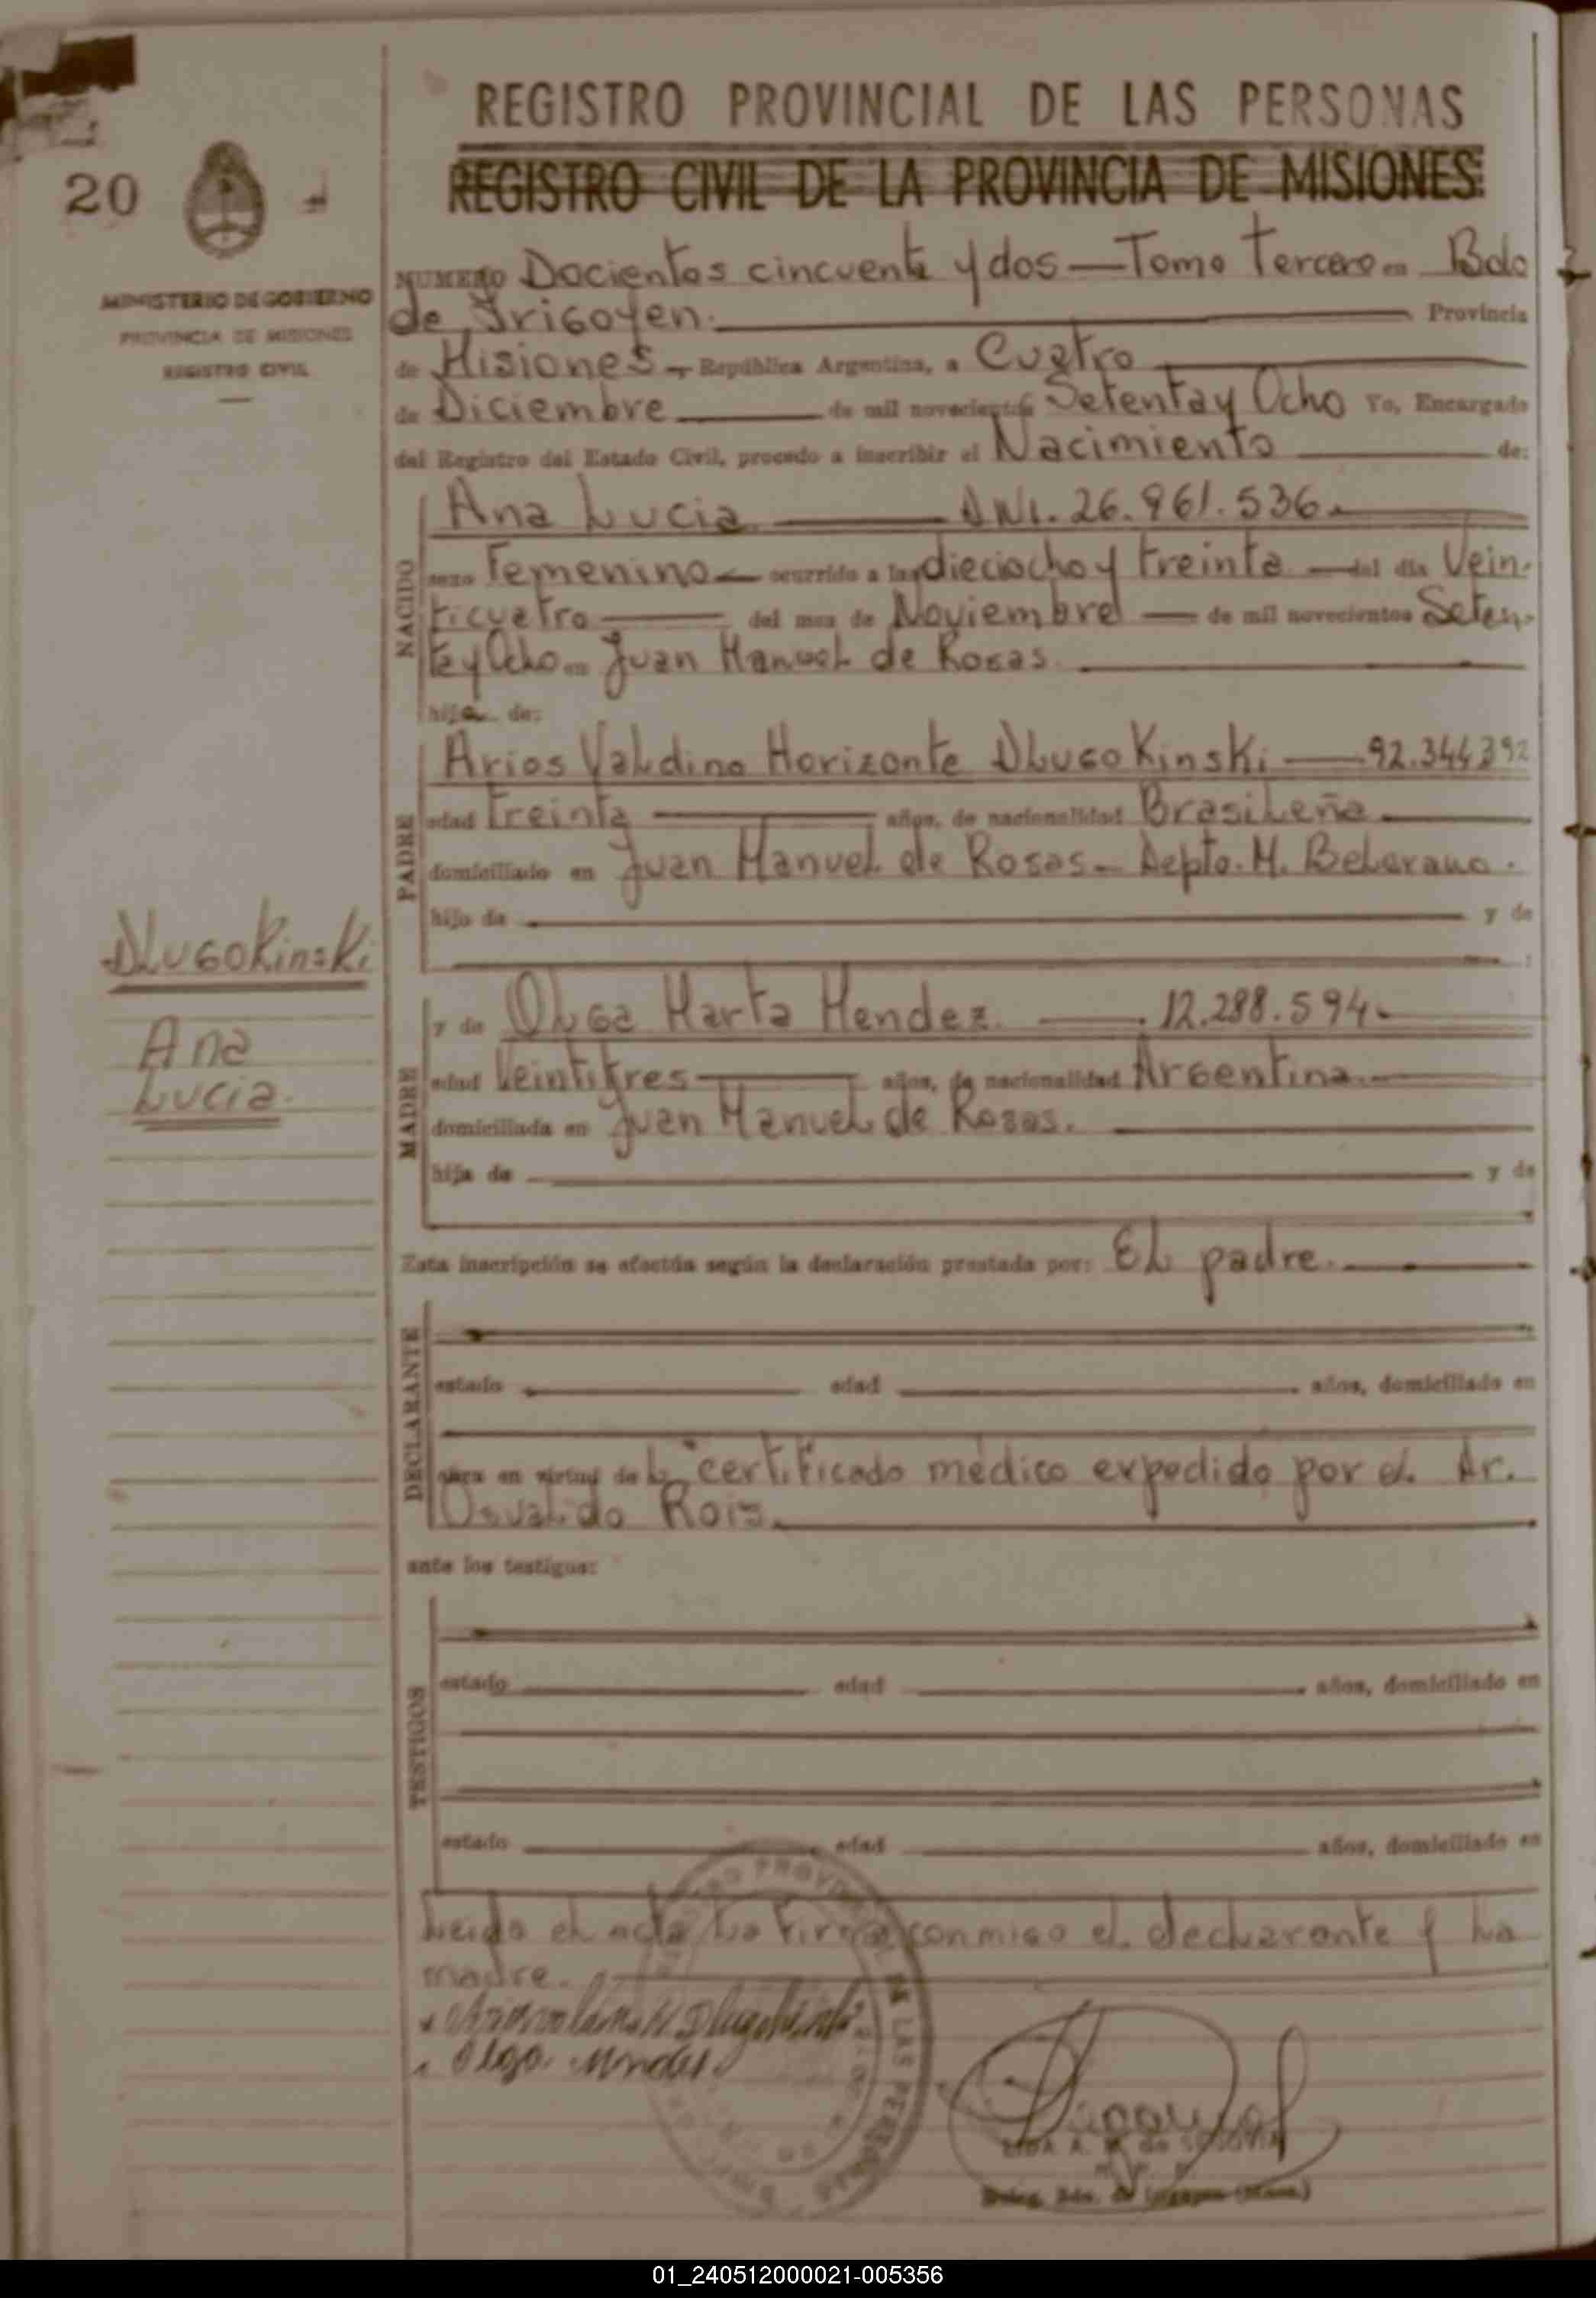 REGISTRO PROVINCIAL DE LAS PERSONAS
REGISTRO CIVIL DE LA PROVINCIA DE MISIONES
20
MINISTERIO DE GOBIERNO
PROVINCIA DE MISIONES
REGISTRO CIVIL
NUMERO Docientos cincuenta y dos — Tomo Tercero en Bdo
de Irigoyen. Provincia
de Misiones - República Argentina, a Cuatro
de Diciembre de mil novecientos Setenta y Ocho Yo, Encargado
del Registro del Estado Civil, procedo a inscribir el Nacimiento de:
NACIDO
Ana Lucia DNI. 26.961.536.
sexo Femenino ocurrido a las dieciocho y treinta del dia Vein-
ticuatro del mes de Noviembre de mil novecientos Seten-
ta y Ocho en Juan Manuel de Rosas.
hija de:
PADRE
Arios Valdino Horizonte Dlugokinski 92.344392
edad treinta años, de nacionalidad Brasileña
domiciliado en Juan Manuel de Rosas - Depto. M. Belgrano.
hijo de y de
Dlugokinski
Ana
Lucia.
MADRE
y de Olga Marta Mendez 12.288.594.
edad Veintitres años, de nacionalidad Argentina.
domiciliada en Juan Manuel de Rosas.
hija de y de
Esta inscripción se efectúa según la declaración prestada por: El padre.
DECLARANTE
estado edad años, domiciliado en
obra en virtud de certificado médico expedido por el Dr.
Osvaldo Rois.
ante los testigos:
TESTIGOS
estado edad años, domiciliado en
estado edad años, domiciliado en
Leida el acta la firma conmigo el declarante y la
madre.
Olga Mendes
DE LAS PERSONAS
de SEGOVIA
01_240512000021-005356